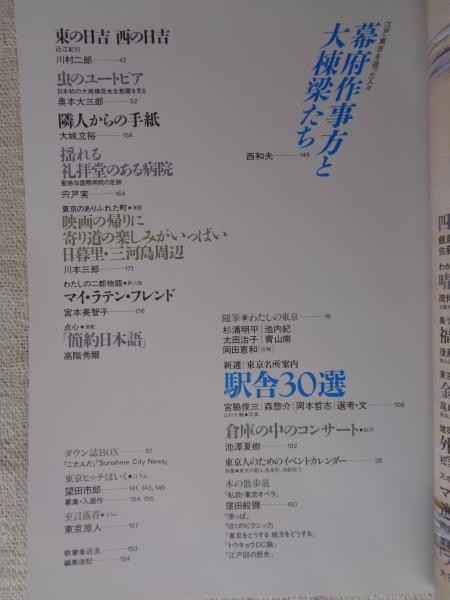 江戸・東京を造った人々
幕府作事方と
大棟梁たち
西和夫 149
東の日吉 西の日吉
近江紀行
川村二郎 42
虫のユートピア
日本初の大規模昆虫生態園を見る
奥本大三郎 52
隣人からの手紙
大城立裕 158
揺れる
礼拝堂のある病院
聖路加国際病院の足跡
宍戸実 164
東京のありふれた町●連載
映画の帰りに
寄り道の楽しみがいっぱい
日暮里・三河島周辺
川本三郎 171
わたしの二都物語●第六話
マイ・ラテン・フレンド
宮本美智子 176
点心●連載
「簡約日本語」
高階秀爾
随筆●わたしの東京 19
杉浦明平|池内紀
太田治子|青山南
岡田恵和(投稿)
新選|東京名所案内
駅舎30選
宮脇俊三|森惣介|岡本哲志|選考・文 109
倉庫の中のコンサート●創作
池澤夏樹 182
東京人のためのイベントカレンダー 38
本の散歩道
窪田般彌 160
「私説・東京オペラ」
「原っぱ」
「ぼくのピクニック」
「東京をどうする 地方をどうする」
「トウキョウDC論」
「江戸図の歴史」
タウン誌BOX 51
「ごたんだ」「Sunshine City News」
東京ヒッチはいく●コラム
望田市郎 141, 143, 145
募集・入選作 154, 155
至言落首●コラム
東京原人 157
執筆者近況 193
編集後記 194